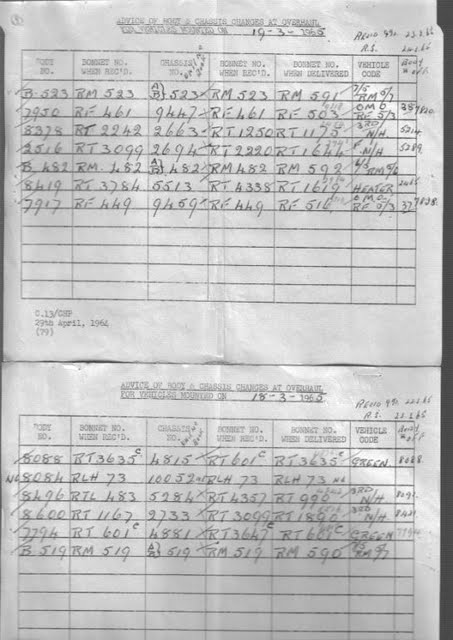 ADVICE OF BODY & CHASSIS CHANGES AT OVERHAUL
FOR VEHICLES MOUNTED ON 19-3-1965
BODY NO. BONNET NO. WHEN REC'D. CHASSIS NO. BONNET NO. BONNET NO. WHEN DELIVERED VEHICLE CODE Body off
B.523 RM 523 A/B} 523 RM 523 RM 591 7/5 RM 9/7
7950 RF 461 9447 RF 461 RF 503 O.M.O. RF 5/3 38 7820
8378 RT 2242 2663 RT 1250 RT 1175 3RD N/H 5214
2516 RT 3099 2694 RT 2220 RT 1644 N/H 5289
B.482 RM. 482 A/B} 482 RM 482 RM 592 RM
8419 RT 3784 5513 RT 4338 RT 1619 HEATER
7917 RF 449 9459 RF 449 RF 516 O.M.O. RF 5/3 37 7828
C.13/GHP
29th April, 1964
(79)
ADVICE OF BODY & CHASSIS CHANGES AT OVERHAUL
FOR VEHICLES MOUNTED ON 18-3-1965
BODY NO. BONNET NO. WHEN REC'D. CHASSIS NO. BONNET NO. BONNET NO. WHEN DELIVERED VEHICLE CODE Body off
8088 RT 3635 C 4815 RT 601 C RT 3635 C GREEN 8088
8084 RLH 73 10052 RLH 73 RLH 73
8496 RTL 483 5284 RT 4357 RT 990 3RD N/H
8600 RT 1167 2733 RT 3099 RT 1890 3RD N/H
7794 RT 601 C 4881 RT 3647 C RT 601 C GREEN 7794
B.519 RM 519 A/B} 519 RM 519 RM 590 RM 9/7